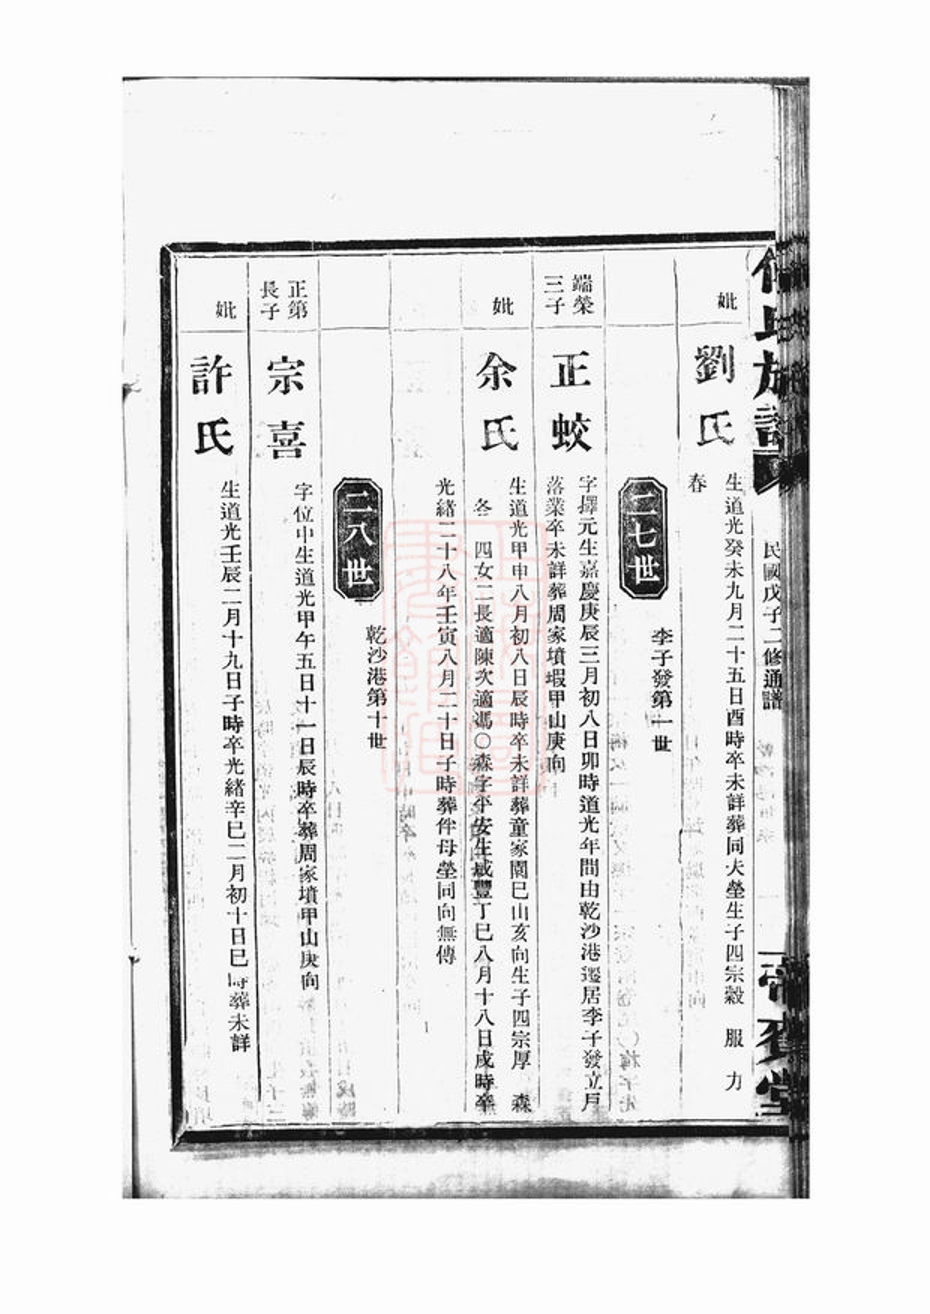 氏族譜
民國戊子二修通譜
堂
妣
劉氏
生道光癸未九月二十五日酉時卒未詳葬同夫塋生子四宗穀 服 力
春
二七世
李子發第一世
端榮
三子
正蛟
字擇元生嘉慶庚辰三月初八日卯時道光年間由乾沙港遷居李子發立戶
落業卒未詳葬周家墳瑕甲山庚向
妣
余氏
生道光甲申八月初八日辰時卒未詳葬童家園巳山亥向生子四宗厚 森
冬 四女二長適陳次適馮〇森字平安生咸豐丁巳八月十八日戌時卒
光緒二十八年壬寅八月二十日子時葬伴母塋同向無傳
二八世
乾沙港第十世
正第
長子
宗喜
字位中生道光甲午五日十一日辰時卒葬周家墳甲山庚向
妣
許氏
生道光壬辰二月十九日子時卒光緒辛巳二月初十日巳時葬未詳